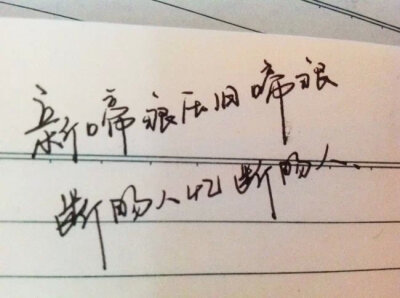 新啼痕压旧啼痕
断肠人忆断肠人.